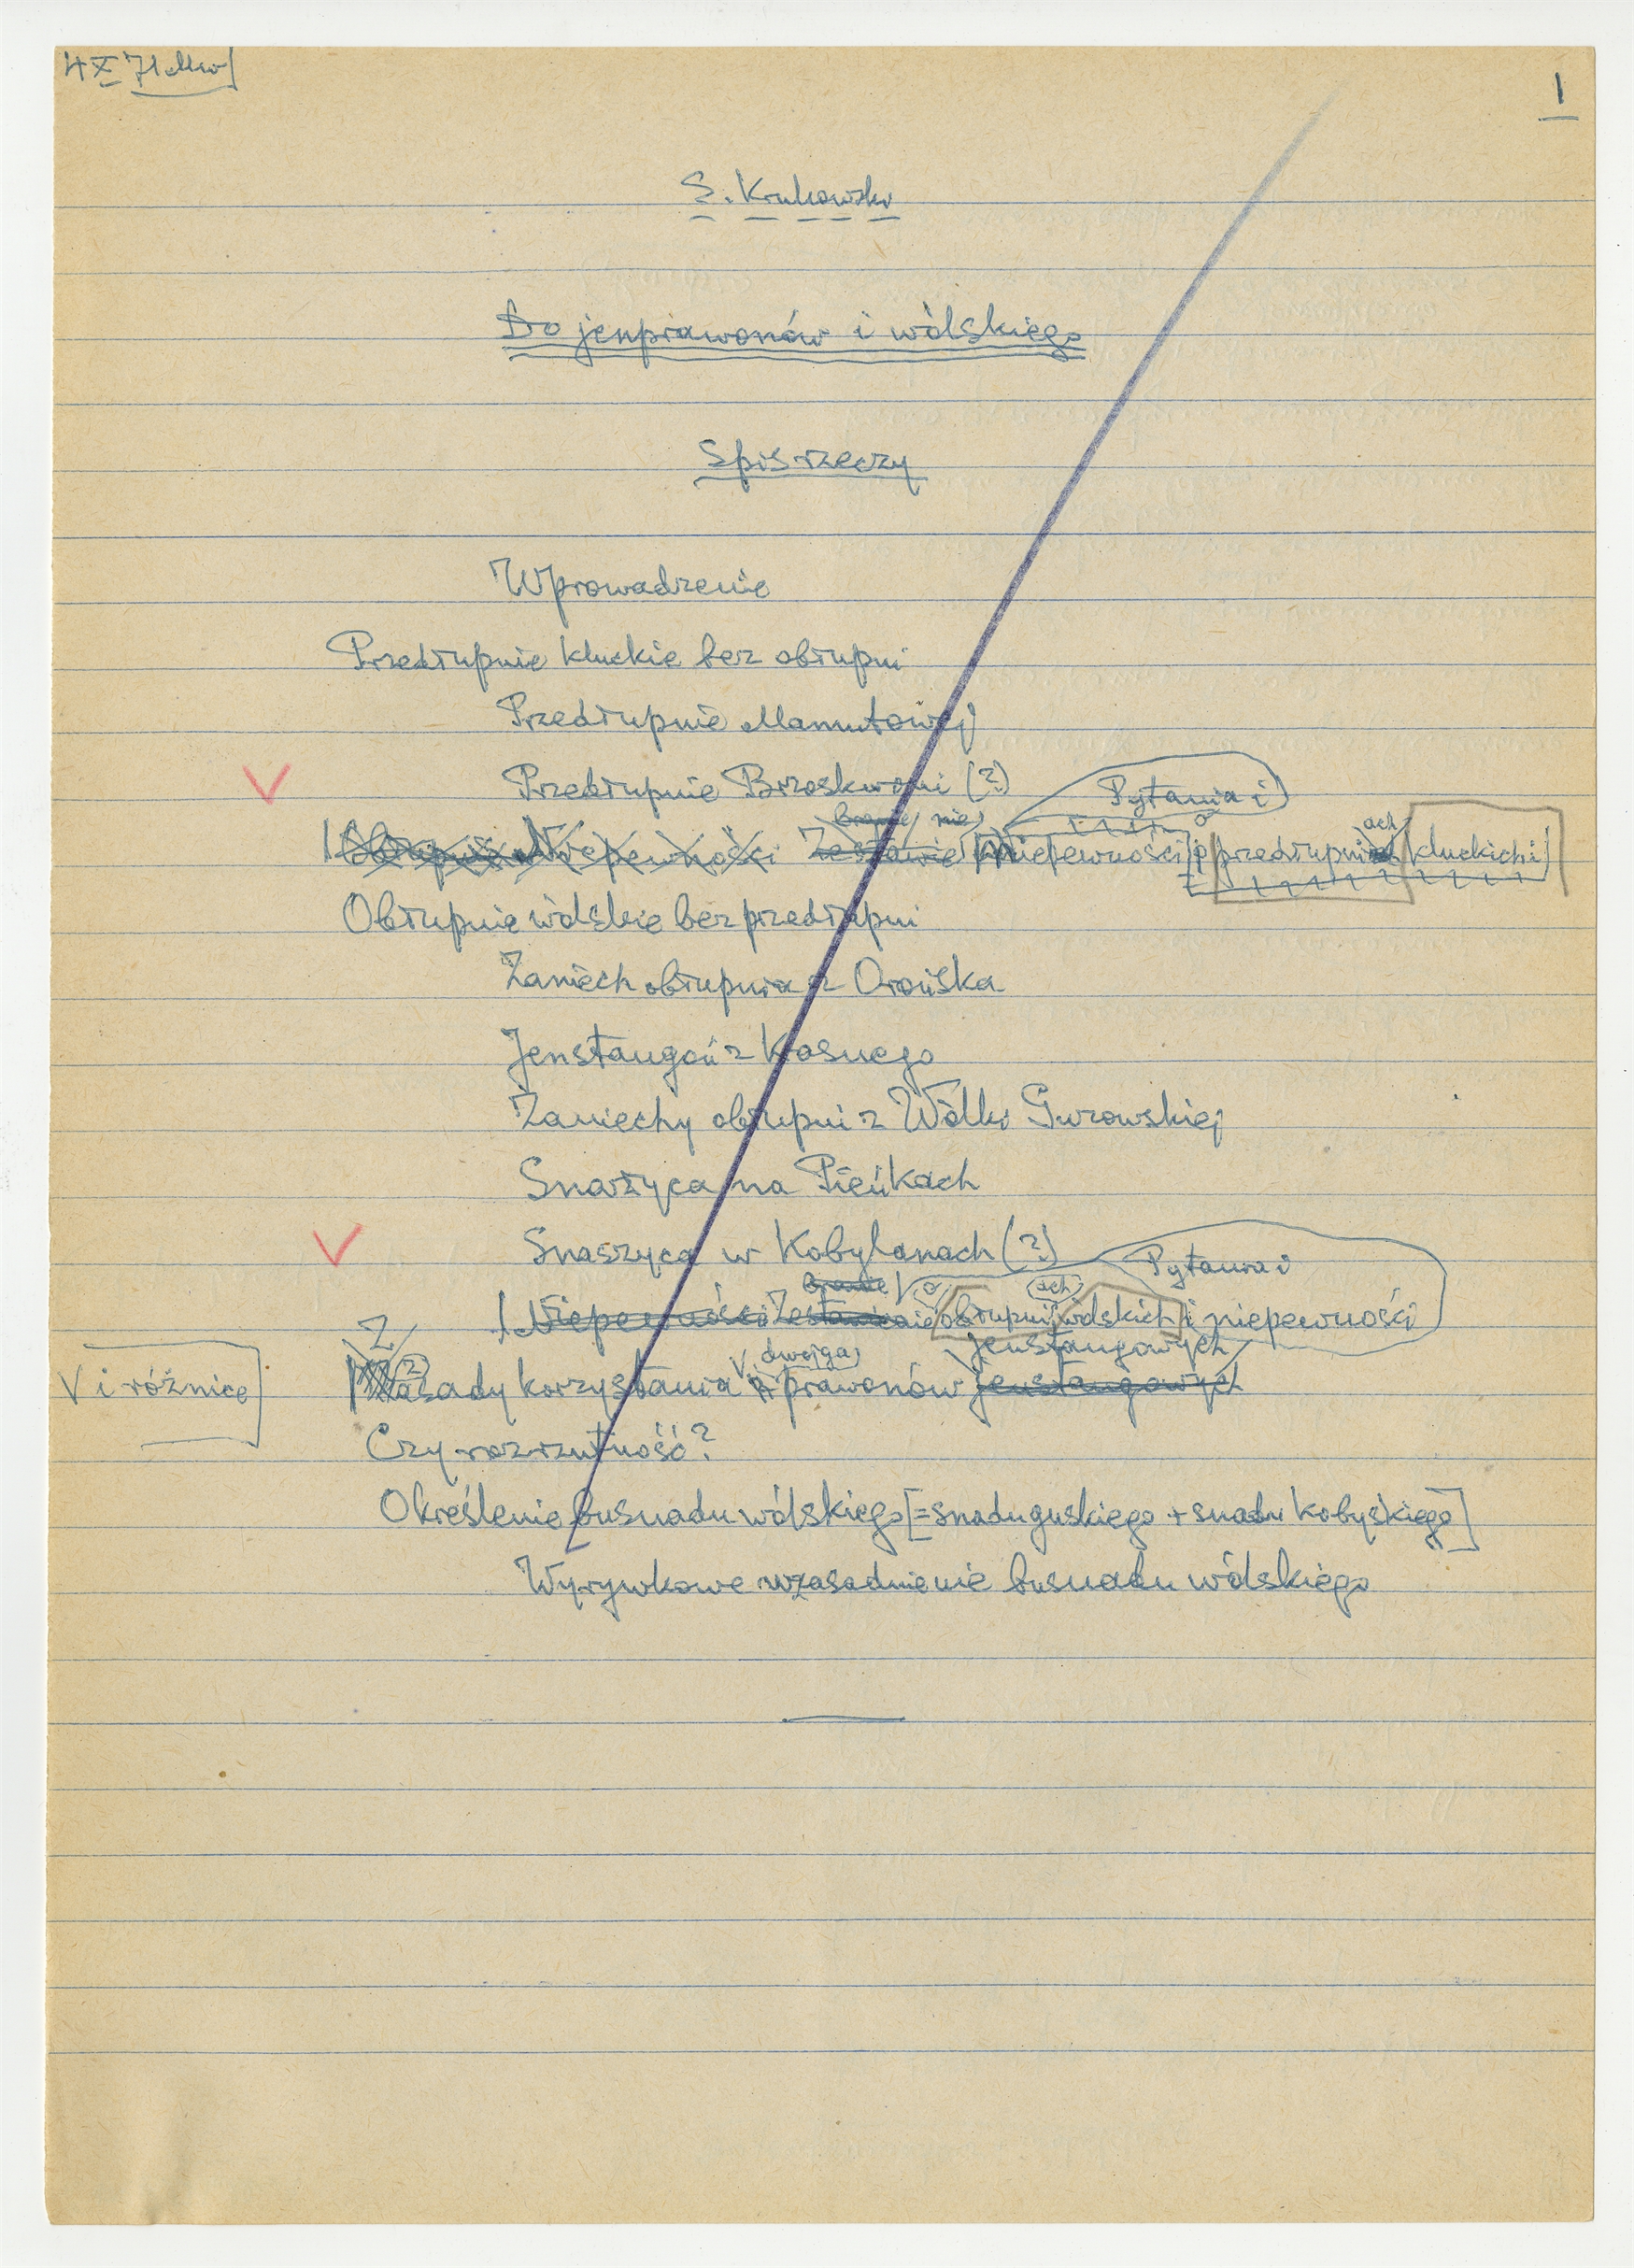 4 X 71
1
S. Krukowski
Do jenprawonów i wólskiego
Spis rzeczy
Wprowadzenie
Przedłupnie kluckie bez obłupni
Przedłupnie Mamutowej
Przedłupnie Brzoskwini (?)
Pytania i
Niepewności Zestawie niepewności o przedłupniach kluckich i
Obłupnie wólskie bez przedłupni
Zaniech obłupnia z Orońska
Jenstangoń z Krasnego
Zaniechy obłupni z Wólki Gurowskiej
Snaszyca na Pieńkach
Snaszyca w Kobylanach (?)
Pytania i
Niepewności Zestawienie o obłupniach wólskich i niepewności
jenstangowych
dwojga
V i różnice
Zasady korzystania z prawonów jenstangowych
Czy rozrzutność?
Określenie busnadu wólskiego [= snadu guskiego + snadu kobyskiego]
Wyrywkowe uzasadnienie busnadu wólskiego